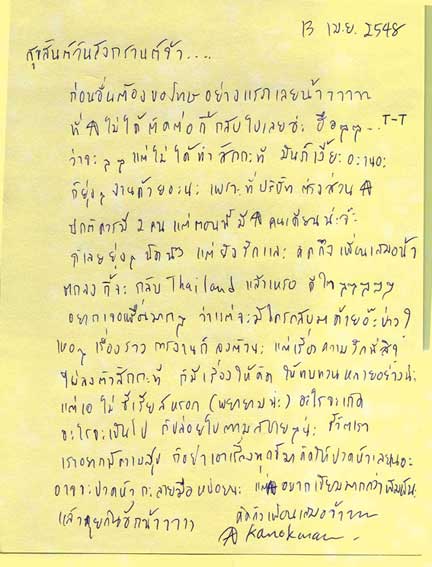 13 เม.ย. 2548
สุขสันต์วันสงกรานต์จ้า....
ก่อนอื่นต้องขอโทษอย่างแรกเลยน้าาาาา
ที่ A ไม่ได้ติดต่อกี้กลับไปเลยอ่ะ ... T-T
ว่าจะๆๆ แต่ไม่ได้ทำสักกะที มันก็เงี้ยะอะเนอะ
ก็ยุ่งๆงานด้วยอะนะ เพราะที่บริษัท ตรงส่วน A
ปกติควรมี 2 คน แต่ตอนนี้มี A คนเดียวน่ะจ้ะ
ก็เลยยุ่งๆนิดนึง แต่ยังรักและ คิดถึง เพื่อนเสมอน้า
ตกลงกี้จะ กลับ Thailand แล้วเหรอ ดีใจๆๆๆๆๆ
อยากเจอเพื่อนมากๆ ว่าแต่จะมีใครกลับมาด้วยอ๊ะป่าว?
เหอๆ เรื่องราว การงานก็ลงตัวนะ แต่เรื่องความรักนี่สิ
ไม่ลงตัวสักกะที ก็มีเรื่องให้คิด ให้ทบทวนหลายอย่างน่ะ
แต่เอ ไม่ ซีเรียสหรอก (พยายามน่ะ) อะไรจะเกิด
อะไรจะเป็นไป ก็ปล่อยไปตามสบายๆน่ะ ชีวิตเรา
เราอยากมีความสุข ก็อย่าเอาเรื่องทุกข์มาคิดให้ปวดหัวเลยเนอะ
อาจจะปวดหัว กะลายมือหน่อยนะ แต่ A อยากเขียนมากกว่าพิมพ์น่ะ
แล้วคุยกันอีกน้าาาาา คิดถึงเพื่อนเสมอจ้าาา
A Kanokwan